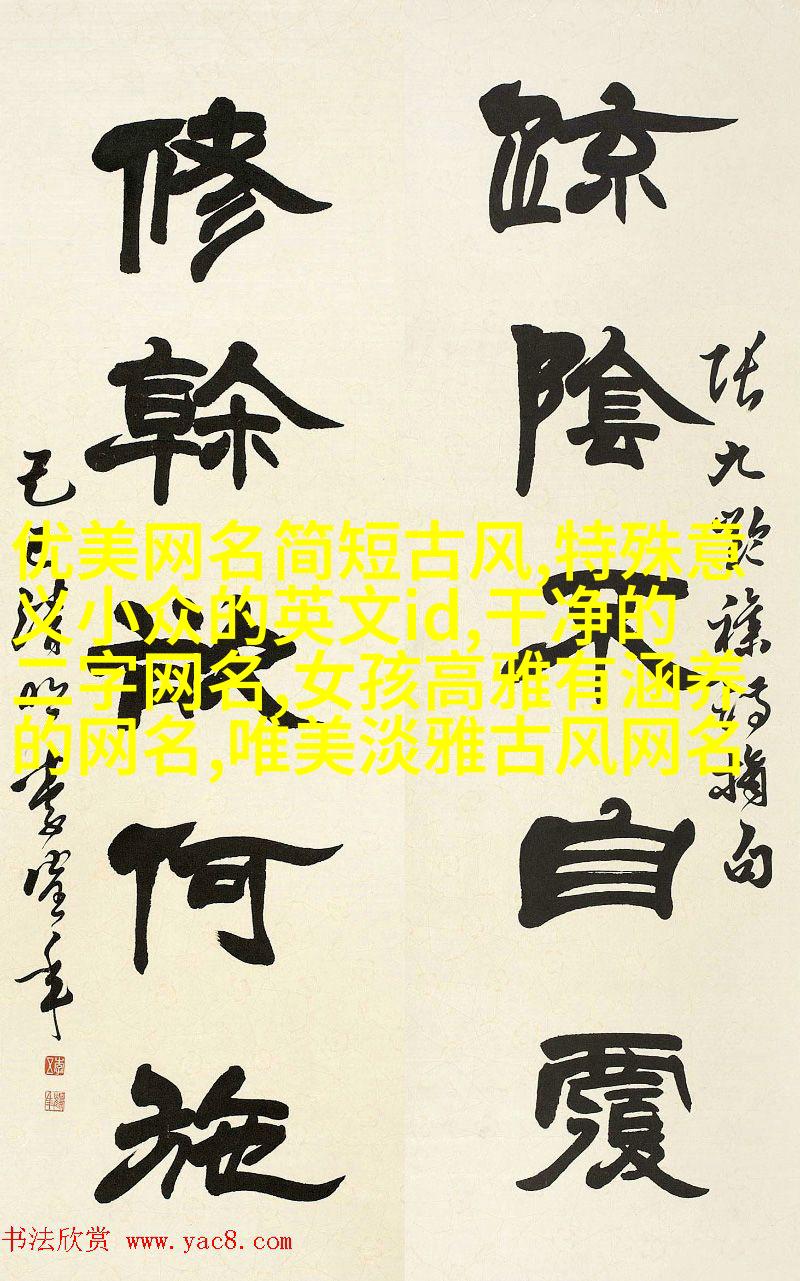 疏陰不自覆
修幹欲何施
張九齡雜詩摘句
己
年
优美网名简短古风,特殊意
义小众的英文id,干净的
二字网名,女孩高雅有涵养
的网名,唯美淡雅古风网名
书法欣赏 www.yac8.com